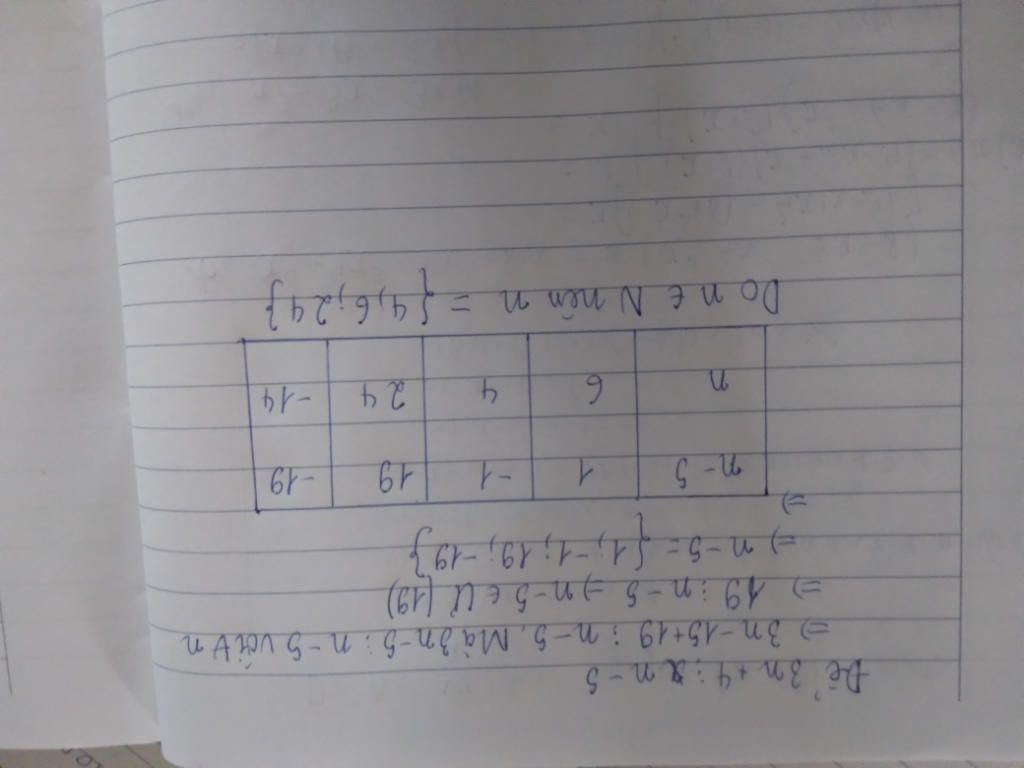 Để 3n+4 ⋮ n-5
⇒ 3n-15+19 ⋮ n-5. Mà 3n-5 ⋮ n-5 với ∀n
⇒ 19 ⋮ n-5 ⇒ n-5 ∈ Ư (19)
⇒ n-5 = {1; -1; 19; -19}
⇒
n-5 1 -1 19 -19
n 6 4 24 -14
Do n ∈ N nên n = {4; 6; 24}